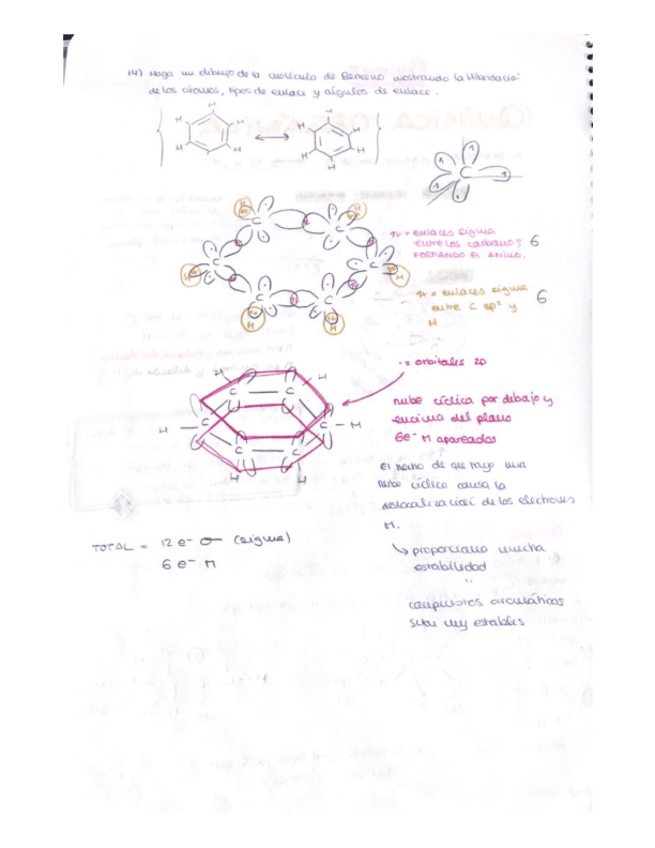 14) Haga un dibujo de la molécula de Benceno mostrando la Hibridación
de los átomos, tipos de enlace y ángulos de enlace.
H H
H H H H
H H H H
H H
C
C C
C C
C C
H H
H H
H H
1 = enlaces sigma
entre los carbonos 6
FORMANDO EL ANILLO.
1 = enlaces sigma
entre C sp² y 6
H
· = orbitales 2p
H H
C C
H C C H
C C
H H
nube cíclica por debajo y
encima del plano
6e⁻ π apareados
El hecho de que haya una
nube cíclica causa la
deslocalización de los electrones
π.
↳ proporciona mucha
estabilidad
"
compuestos aromáticos
son muy estables
TOTAL = 12 e⁻ σ (sigma)
6 e⁻ π